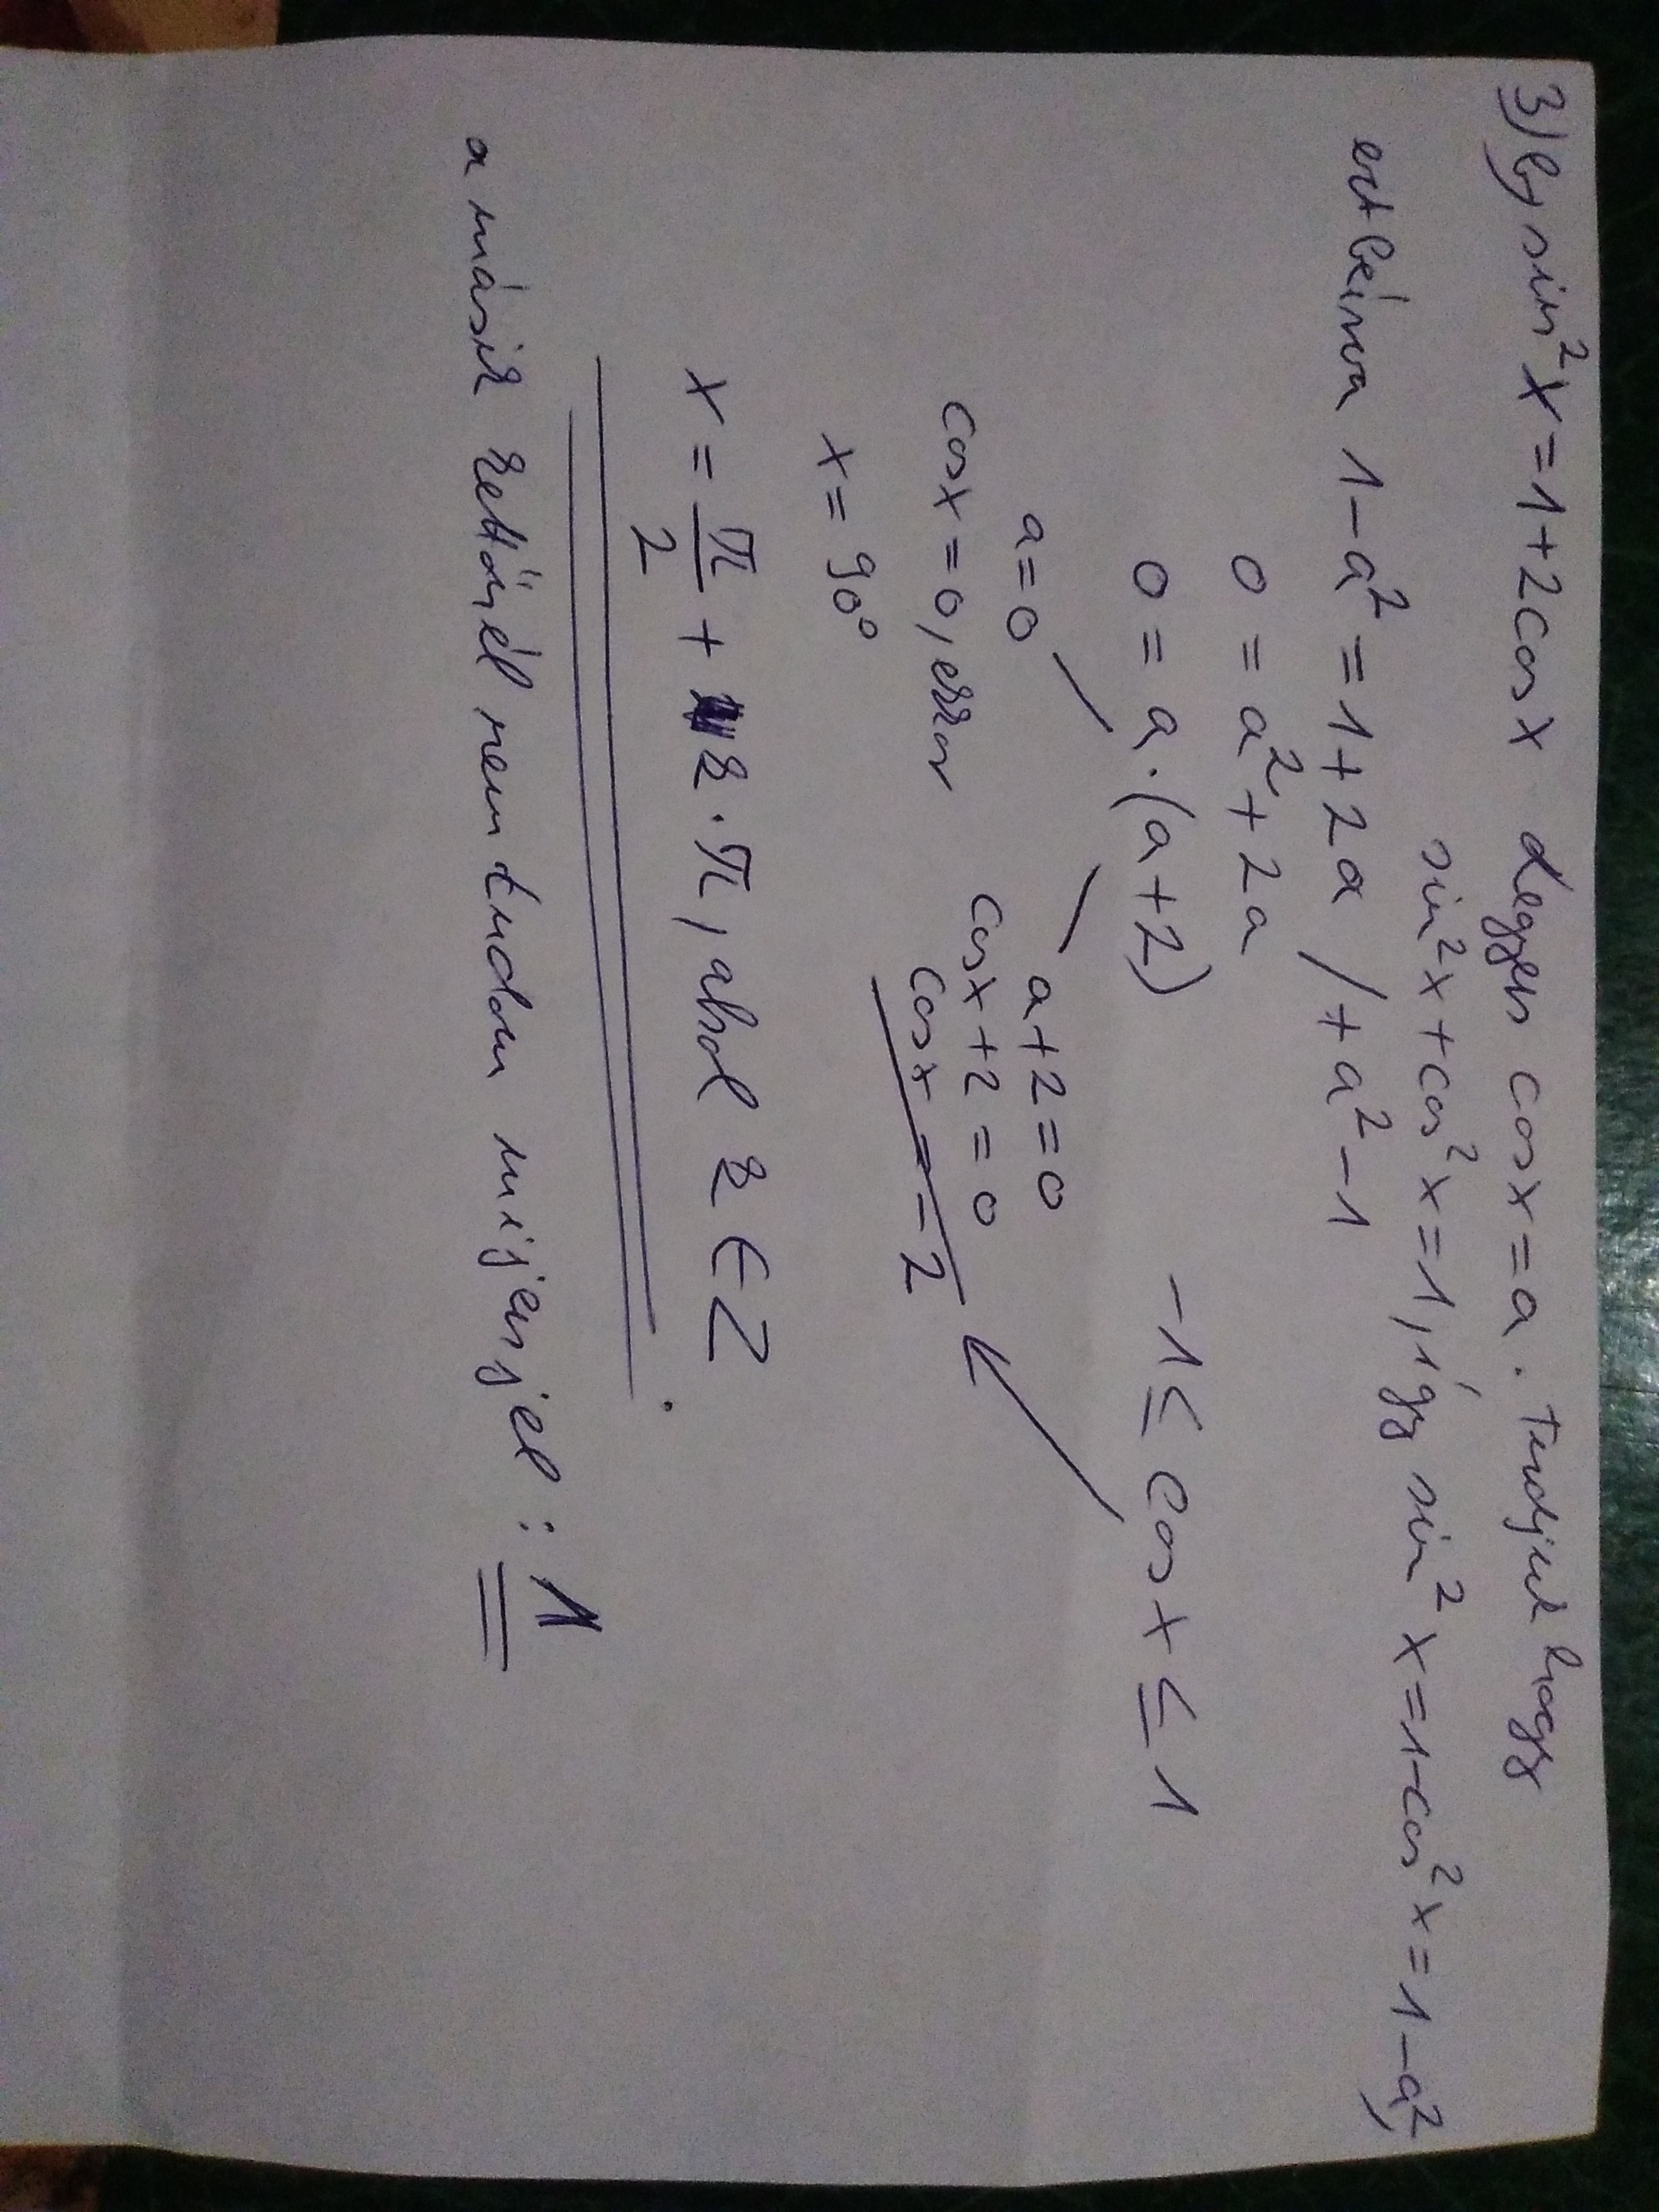 3) b, sin²x=1+2cosx legyen cosx=a. Tudjuk hogy
sin²x+cos²x=1, így sin²x=1-cos²x=1-a²,
ezt beírva 1-a²=1+2a /+a²-1
0=a²+2a
0=a·(a+2)
-1≤cosx≤1
a=0
a+2=0
cosx=0, ekkor
cosx+2=0
x=90°
cosx=-2
x=π/2+k·π, ahol k∈Z
a másik kettőnél nem tudom mi jön jel: 1